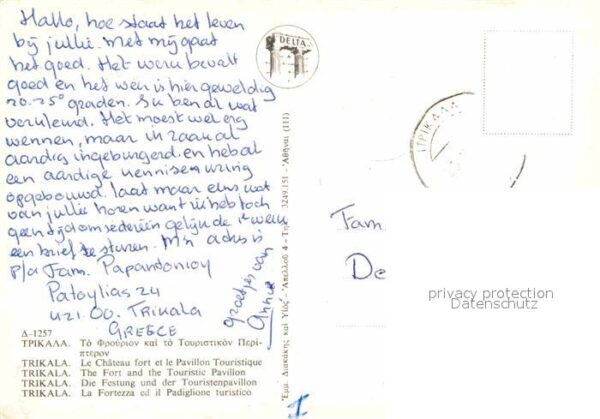 Hallo, hoe staat het leven
bij jullie. Met mij gaat
het goed. Het werk bevalt
goed en het weer is hier geweldig
20-25° graden. Ik ben al wat
verkleurd. Het moest wel erg
wennen, maar ik raak al
aardig ingeburgerd. en heb al
een aardige kennissenkring
opgebouwd. Laat maar eens wat
van jullie horen want ik heb toch
geen tijd om iedereen gelijk de 1e week
een brief te sturen. M'n adres is
p/a Fam. Papandoniou
Patoylias 24
421.00. Trikala
GREECE
groetjes van
DELTA
ΤΡΙΚΑΛΑ
Fam.
De
privacy protection
Datenschutz
Δ-1257
ΤΡΙΚΑΛΑ. Τὸ Φρούριον καὶ τὸ Τουριστικὸν Περί-
πτερον
TRIKALA. Le Château fort et le Pavillon Touristique
TRIKALA. The Fort and the Touristic Pavillon
TRIKALA. Die Festung und der Touristenpavillon
TRIKALA. La Fortezza ed il Padiglione turistico
Διακάκης καὶ Υἱός - Ἀπελλοῦ 4 - 3249.151 - Ἀθῆναι (111)